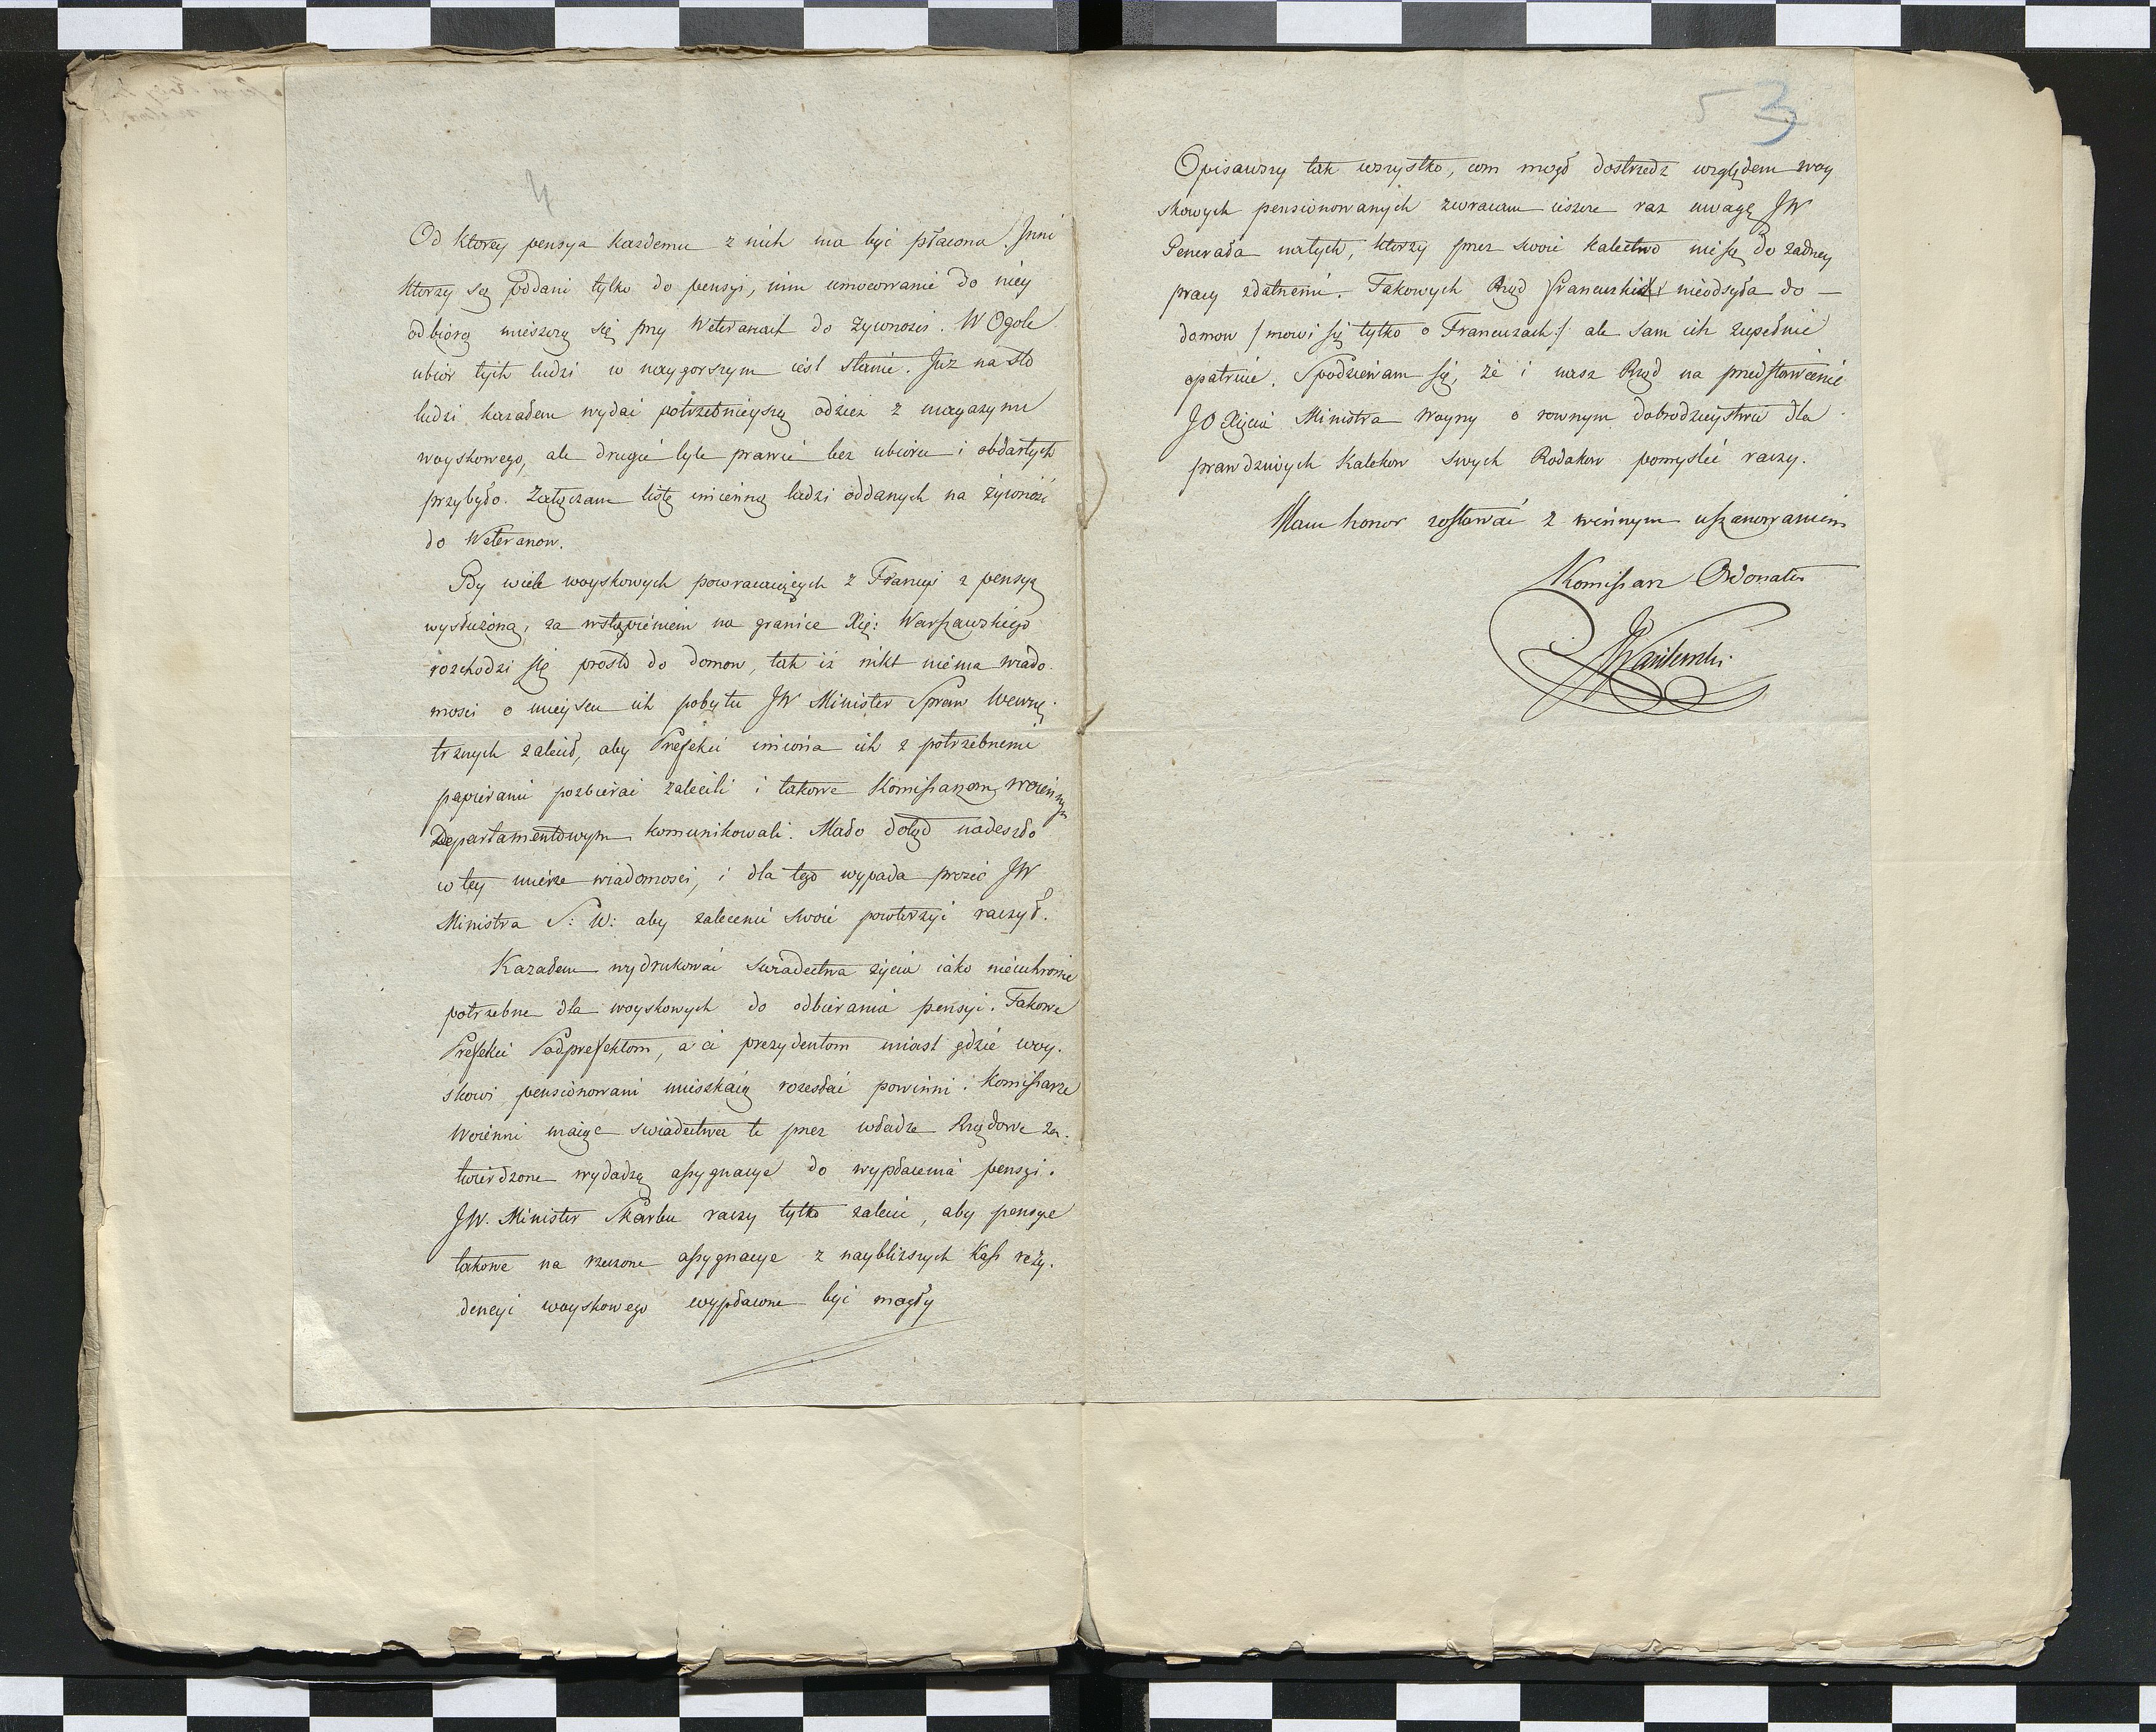 Od ktorey pensya każdemu z nich ma być płacona. Inni
ktorzy są poddani tylko do pensyi, nim umocowanie do niey
odbiorą mieszczą się przy Weteranach do żywnosci. W Ogole
ubiór tych ludzi w naygorszym iest stanie. Juz na sto
ludzi kazałem wydać potrzebnieyszą odzież z magazynu
woyskowego, ale drugie tyle prawie bez ubioru i obdartych
przybyło. Załączam listę imienną ludzi oddanych na żywność
do Weteranow.
Gdy wiele woyskowych powracaiących z Francyi z pensyą
wysłużoną, za wstąpieniem na granice Xię: Warszawskiego
rozchodzi się prosto do domow, tak iż nikt niema wiado-
mosci o mieyscu ich pobytu JW Minister Spraw Wewnę-
trznych zalecił, aby Prefekci imiona ich z potrzebnemi
papierami pozbierać zalecili i takowe Komissarzom Woiennym
Departamentowym komunikowali. Mało dotąd nadeszło
w tey mierze wiadomosci, i dla tego wypada prosić JW
Ministra S: W: aby zalecenie swoie powtorzyć raczył.
Kazałem wydrukować swiadectwa życia iako nieuchronie
potrzebne dla woyskowych do odbierania pensyi. Takowe
Prefekci Podprefektom, a ci prezydentom miast gdzie woy-
skowi pensionowani mieszkaią rozesłać powinni. Komissarze
Woienni maiąc swiadectwa te przez władze Rządowe za-
twierdzone wydadzą assygnacye do wypłacenia pensyi.
JW. Minister Skarbu raczy tylko zalecić, aby pensye
takowe na rzeczone assygnacye z nayblizszych Kass rezy-
dencyi woyskowego wypłacone być mogły
53
Opisawszy tak wszystko, com mogł dostrzedz względem woy
skowych pensionowanych zwracam ieszcze raz uwagę JW
Generała na tych, ktorzy przez swoie kalectwo nie są do żadney
pracy zdatnemi. Takowych Rząd Francuski nieodsyła do —
domow / mowi się tylko o Francuzach / ale sam ich zupełnie
opatruie. Spodziewam się, że i nasz Rząd na przedstawienie
JO Xięcia Ministra Woyny o rownym dobrodzieystwie dla
prawdziwych Kalekow swych Rodakow pomysleć raczy.
Mam honor zostawać z winnym uszanowaniem
Komissarz Ordonator